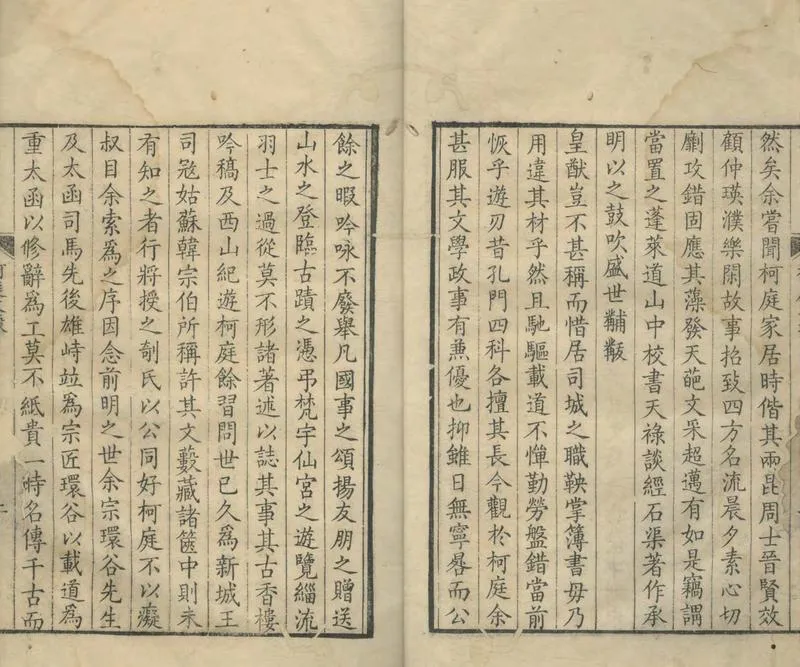 然矣余嘗聞柯庭家居時偕其兩昆周士晉賢效
顧仲瑛濮樂閒故事招致四方名流晨夕素心切
劘攻錯固應其藻發天葩文采超邁有如是竊謂
當置之蓬萊道山中校書天祿談經石渠著作承
明以之鼓吹盛世黼黻
皇猷豈不甚稱而惜居司城之職鞅掌簿書毋乃
用違其材乎然且馳驅載道不憚勤勞盤錯當前
恢乎遊刃昔孔門四科各擅其長今觀於柯庭余
甚服其文學政事有兼優也抑錐日無寧晷而公
餘之暇吟咏不廢舉凡國事之頌揚友朋之贈送
山水之登臨古蹟之憑弔梵宇仙宮之遊覽緇流
羽士之過從莫不形諸著述以誌其事其古香樓
吟稿及西山紀遊柯庭餘習問世已久為新城王
司寇姑蘇韓宗伯所稱許其文藪藏諸篋中則未
有知之者行將授之剞氏以公同好柯庭不以癡
叔目余索為之序因念前明之世余宗環谷先生
及太函司馬先後雄峙竝為宗匠環谷以載道為
重太函以修辭為工莫不紙貴一時名傳千古而